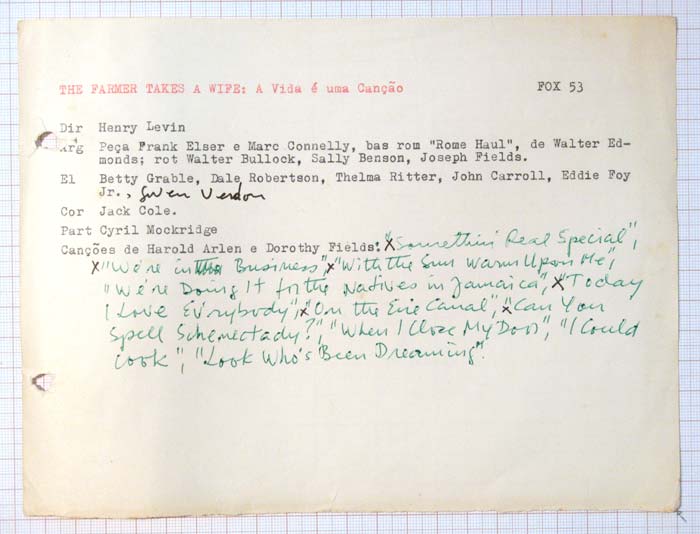 THE FARMER TAKES A WIFE: A Vida é uma Canção FOX 53
Dir Henry Levin
Arg Peça Frank Elser e Marc Connelly, bas rom "Rome Haul", de Walter Ed-
monds; rot Walter Bullock, Sally Benson, Joseph Fields.
El Betty Grable, Dale Robertson, Thelma Ritter, John Carroll, Eddie Foy
Jr., Gwen Verdon
Cor Jack Cole.
Part Cyril Mockridge
Canções de Harold Arlen e Dorothy Fields: x "Somethin' Real Special",
x "We're in Business", x "With the Sun Warm Upon Me",
"We're Doing It for the Natives in Jamaica", x "Today
I Love Ev'rybody", x "On the Erie Canal", x "Can You
Spell Schenectady?", "When I Close My Door", "I Could
Cook", "Look Who's Been Dreaming".